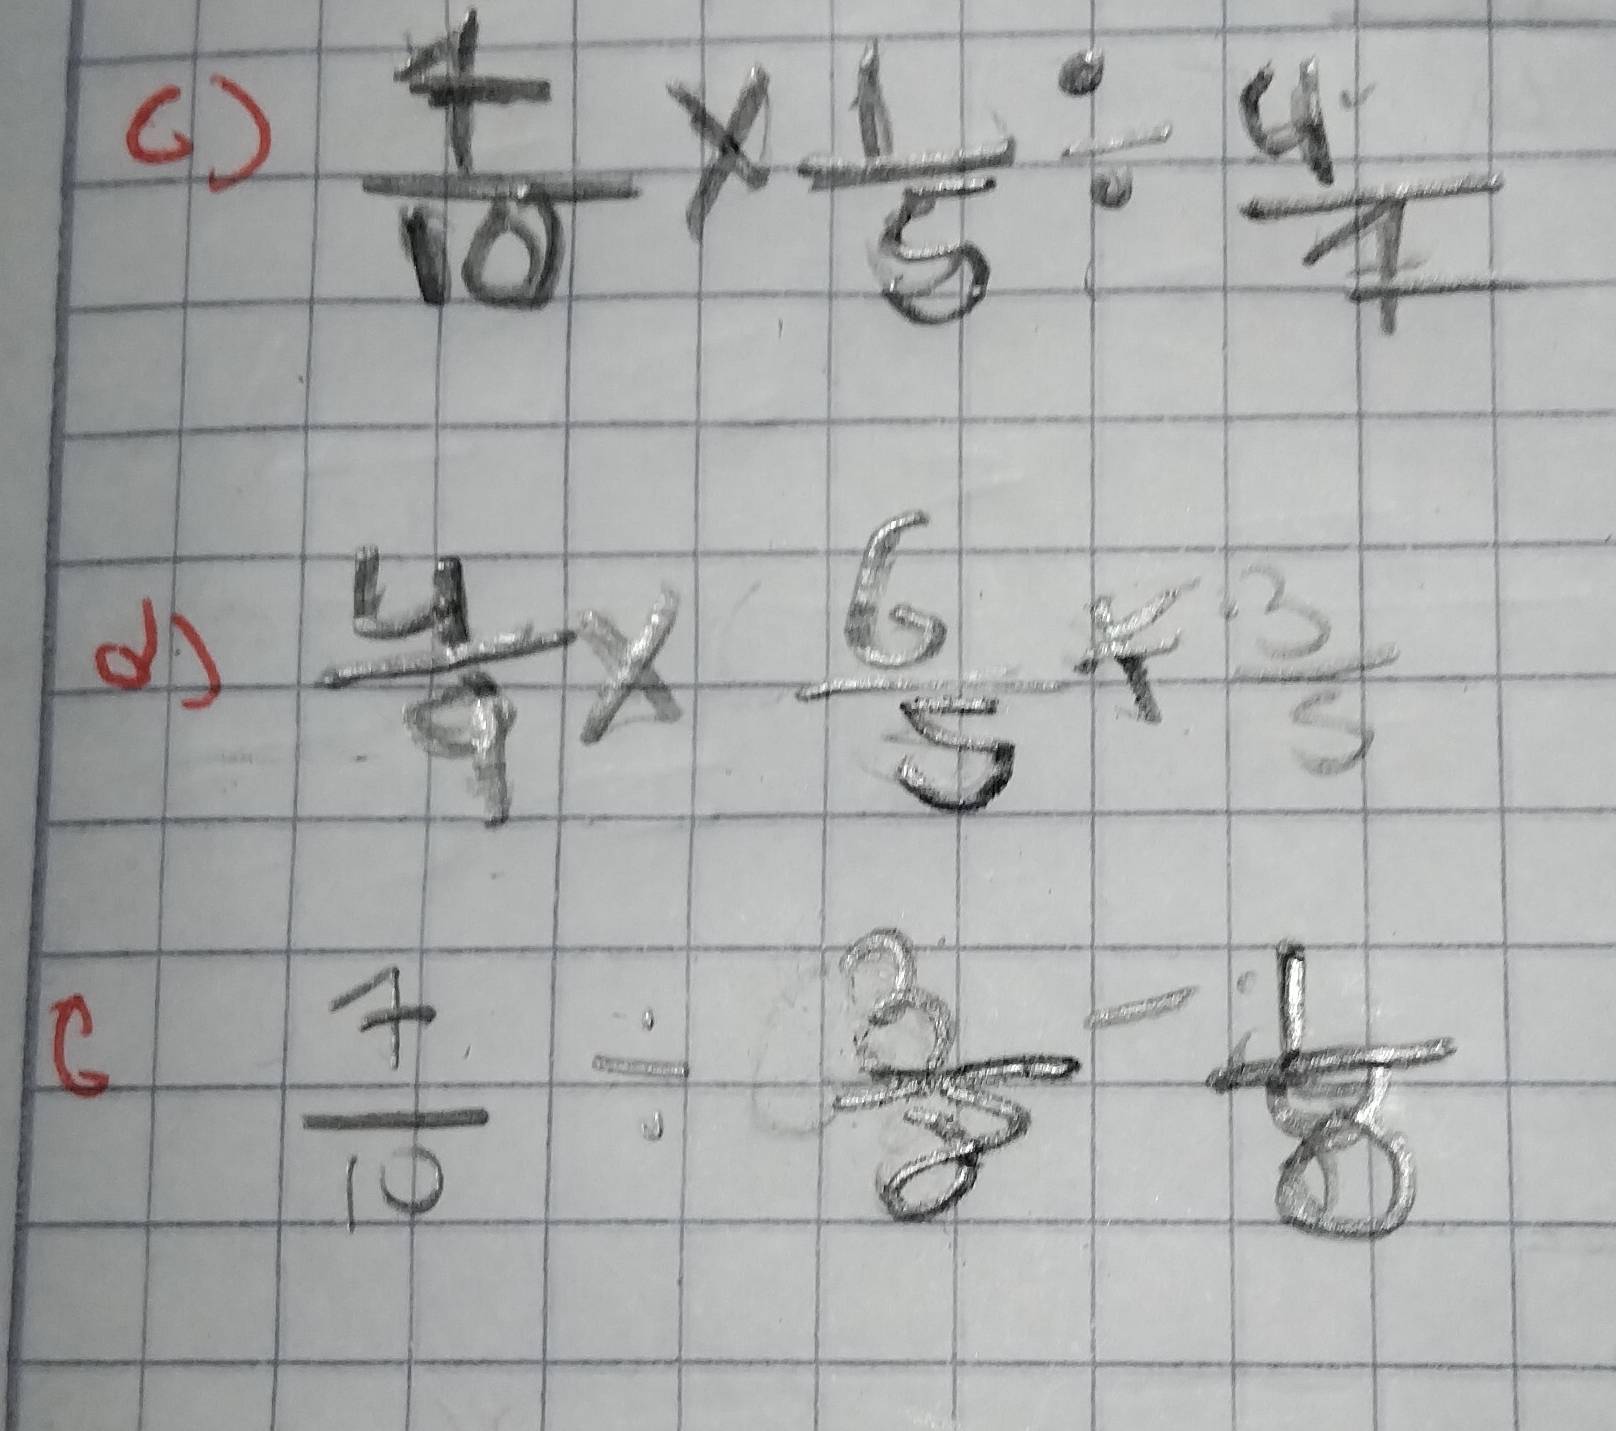 c) 7/10 × 1/5 ÷ 4/7
d) 4/9 × 6/5 × 3/5
7/10 ÷ 3/8 - 1/8